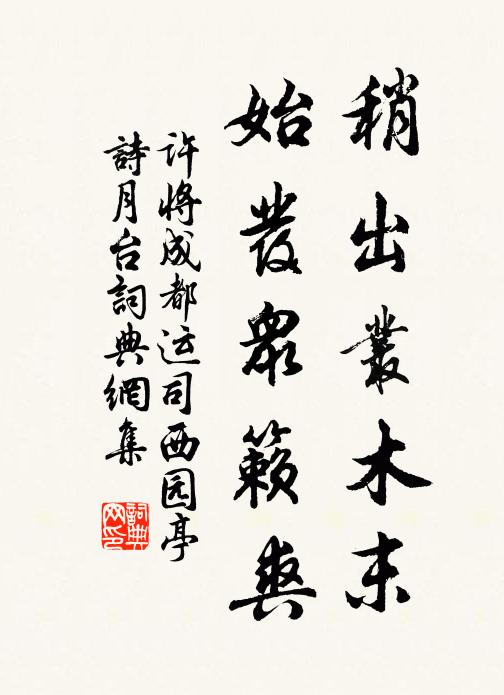 稍出叢木末
始發眾籟爽
许将成都运司西园亭
詩月台詞典網集
詞典
网印